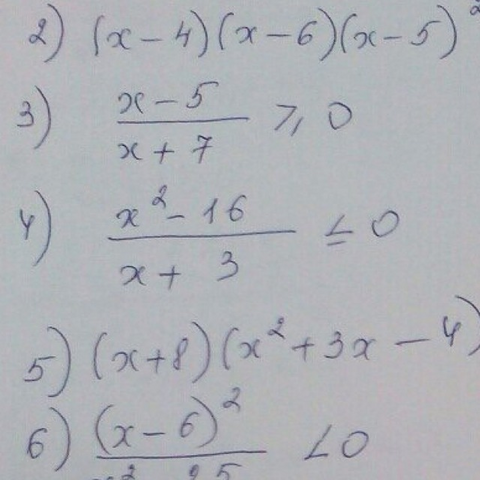 2) (x - 4)(x - 6)(x - 5)²
3) (x - 5)/(x + 7) ≥ 0
4) (x² - 16)/(x + 3) ≤ 0
5) (x+8)(x² + 3x - 4)
6) (x - 6)²/ < 0